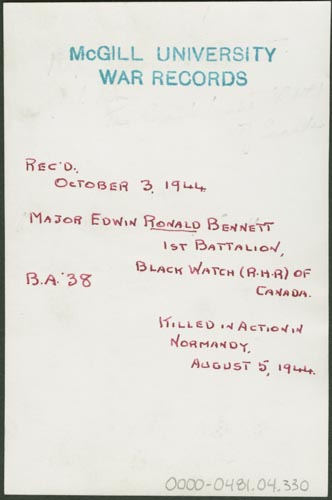 McGILL UNIVERSITY
WAR RECORDS
REC'D.,
OCTOBER 3, 1944
MAJOR EDWIN RONALD BENNETT
1ST BATTALION,
BLACK WATCH (R.H.R) OF
CANADA.
B.A.'38
KILLED IN ACTION IN
NORMANDY,
AUGUST 5, 1944.
0000-0481.04.330